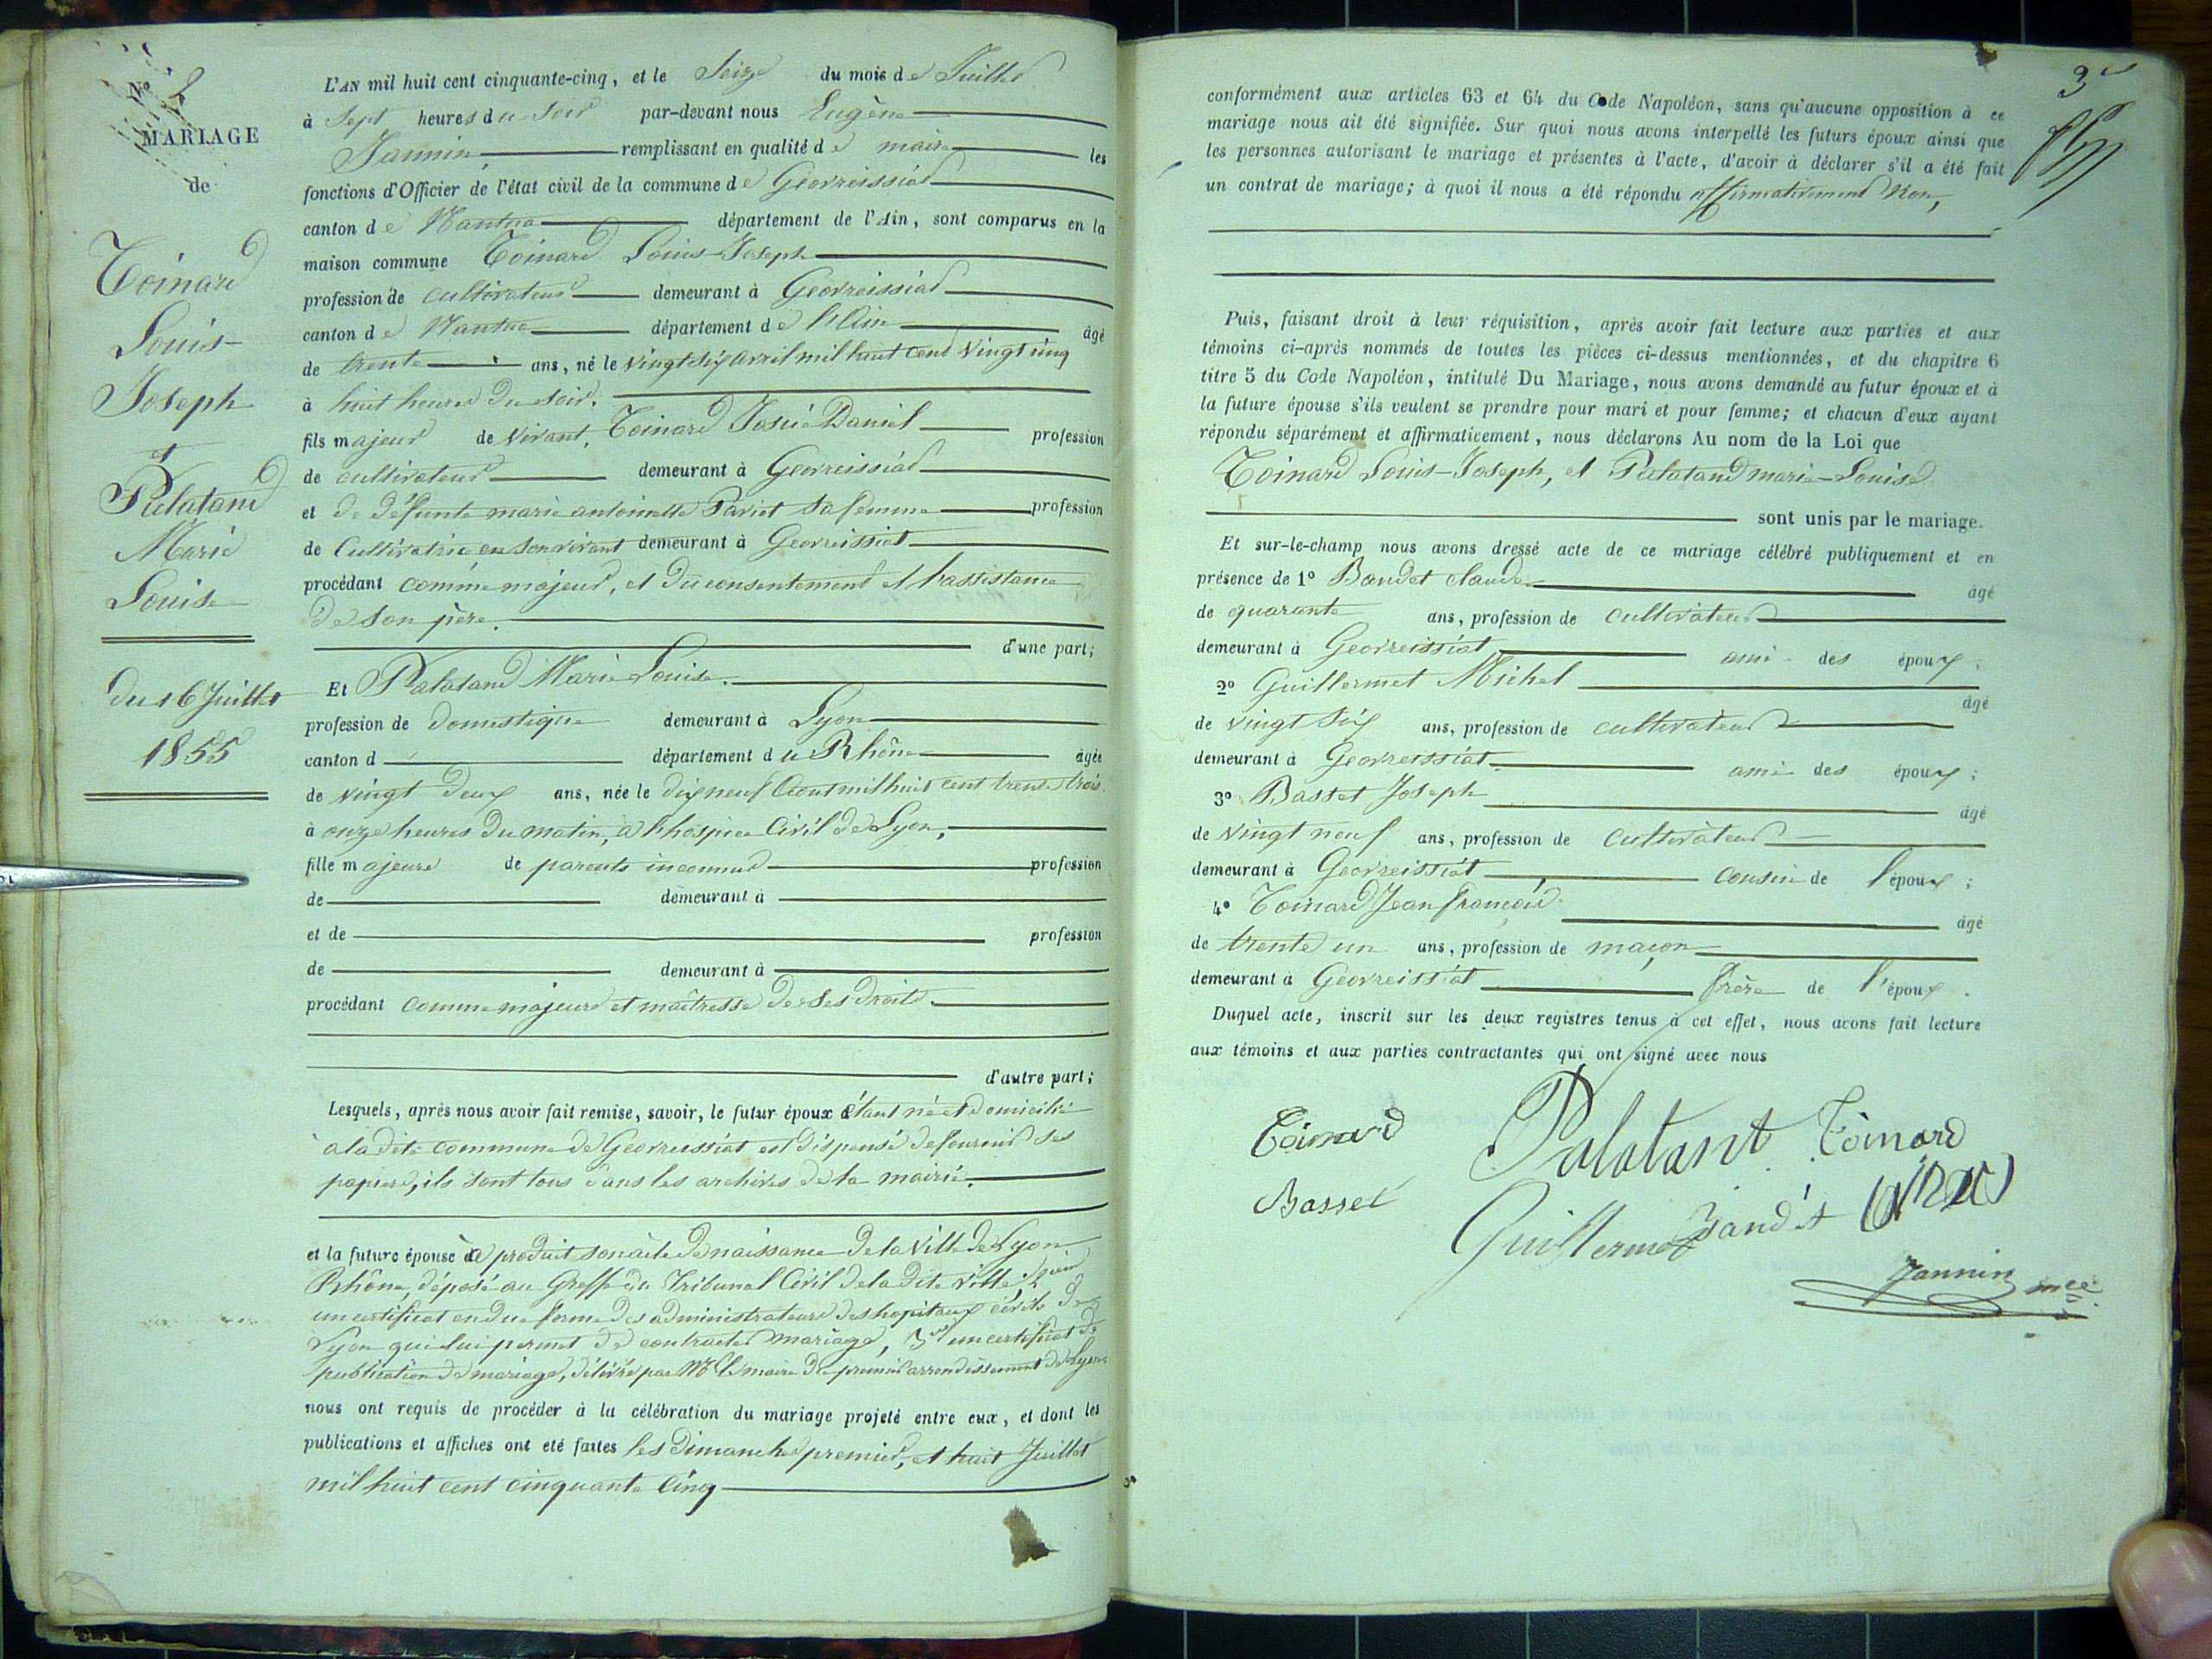 No 2
MARIAGE
de
Toinard
Louis-
Joseph
et
Palatand
Marie
Louise
du 16 Juillet
1855
L'AN mil huit cent cinquante-cinq, et le Seize du mois de Juillet
à Sept heures du soir par-devant nous Eugène
Jannin remplissant en qualité de maire les
fonctions d'Officier de l'état civil de la commune de Géovreissiat
canton de Nantua département de l'Ain, sont comparus en la
maison commune Toinard Louis-Joseph
profession de cultivateur demeurant à Géovreissiat
canton de Nantua département de l'Ain âgé
de trente ans, né le vingt six avril mil huit cent vingt cinq
à huit heures du soir.
fils majeur de vivant, Toinard Daniel profession
de cultivateur demeurant à Géovreissiat
et de défunte marie antoinette Pariot sa femme profession
de Cultivatrice en son vivant demeurant à Géovreissiat
procédant comme majeur, et du consentement et l'assistance
de son père.
d'une part;
Et Palatand Marie Louise.
profession de domestique demeurant à Lyon
canton d département du Rhône âgée
de vingt deux ans, née le dix neuf Aout mil huit cent trente trois
à onze heures du matin, à l'hospice Civil de Lyon,
fille majeure de parents inconnus profession
de demeurant à
et de profession
de demeurant à
procédant comme majeure et maîtresse de ses droits.
d'autre part;
Lesquels, après nous avoir fait remise, savoir, le futur époux étant né et domicilié
à la dite commune de Géovreissiat est dispensé de fournir ses
papiers, ils sont tous dans les archives de la mairie.
et la future épouse a produit son acte de naissance de la Ville de Lyon
Rhône, déposé au Greffe du Tribunal Civil de la dite ville,
un certificat en due forme des administrateurs des hopitaux civils de
Lyon qui lui permet de contracter mariage, 3° un certificat de
publication de mariage, délivré par Mr le maire du premier arrondissement de Lyon
nous ont requis de procéder à la célébration du mariage projeté entre eux, et dont les
publications et affiches ont été faites les dimanches premier, et huit Juillet
mil huit cent cinquante cinq
3
conformément aux articles 63 et 64 du Code Napoléon, sans qu'aucune opposition à ce
mariage nous ait été signifiée. Sur quoi nous avons interpellé les futurs époux ainsi que
les personnes autorisant le mariage et présentes à l'acte, d'avoir à déclarer s'il a été fait
un contrat de mariage; à quoi il nous a été répondu affirmativement Non,
Puis, faisant droit à leur réquisition, après avoir fait lecture aux parties et aux
témoins ci-après nommés de toutes les pièces ci-dessus mentionnées, et du chapitre 6
titre 5 du Code Napoléon, intitulé Du Mariage, nous avons demandé au futur époux et à
la future épouse s'ils veulent se prendre pour mari et pour femme; et chacun d'eux ayant
répondu séparément et affirmativement, nous déclarons Au nom de la Loi que
Toinard Louis-Joseph, et Palatand marie-Louise
sont unis par le mariage.
Et sur-le-champ nous avons dressé acte de ce mariage célébré publiquement et en
présence de 1° Bandet claude âgé
de quarante ans, profession de cultivateur
demeurant à Géovreissiat ami des époux;
2° Guillermet Michel âgé
de vingt six ans, profession de cultivateur
demeurant à Géovreissiat ami des époux;
3° Basset Joseph âgé
de vingt neuf ans, profession de cultivateur
demeurant à Géovreissiat cousin de l'époux;
4° Toinard Jean françois âgé
de trente un ans, profession de maçon
demeurant à Géovreissiat frère de l'époux.
Duquel acte, inscrit sur les deux registres tenus à cet effet, nous avons fait lecture
aux témoins et aux parties contractantes qui ont signé avec nous
Toinard Palatant Toinard
Basset Guillermet Bandet
Jannin mre